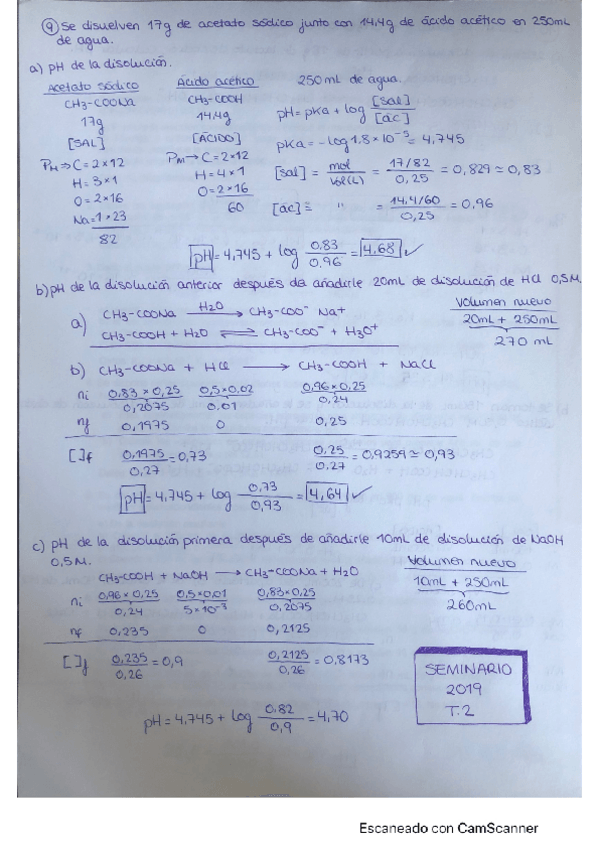 9 Se disuelven 17g de acetato sódico junto con 14,4g de ácido acético en 250mL
de agua.
a) pH de la disolución.
Acetato sódico Ácido acético 250 mL de agua.
CH3-COONa CH3-COOH pH = pKa + log [sal]/[ác]
17g 14,4g
[SAL] [ÁCIDO] pKa = -log 1.8 × 10^-5 = 4,745
PM → C = 2×12 PM → C = 2×12
H = 3×1 H = 4×1 [sal] = mol/Vol(L) = 17/82/0,25 = 0,829 ≃ 0,83
O = 2×16 O = 2×16
Na = 1×23 60 [ác] = " = 14.4/60/0,25 = 0,96
82
pH = 4,745 + log 0,83/0,96 = 4.68 ✓
b) pH de la disolución anterior después de añadirle 20mL de disolución de HCl 0,5M.
Volumen nuevo
20mL + 250mL
270 mL
a) CH3-COONa H2O → CH3-COO⁻ Na⁺
CH3-COOH + H2O ⇌ CH3-COO⁻ + H3O⁺
b) CH3-COONa + HCl → CH3-COOH + NaCl
ni 0,83×0,25 0,5×0,02 0,96×0,25
0,2075 0.01 0,24
nf 0,1975 0 0,25
[ ]f 0,1975/0,27 = 0,73 0,25/0.27 = 0,9259 ≃ 0,93
pH = 4,745 + log 0,73/0,93 = 4,64 ✓
c) pH de la disolución primera después de añadirle 10mL de disolución de NaOH
0,5M.
Volumen nuevo
10mL + 250mL
260mL
CH3-COOH + NaOH → CH3-COONa + H2O
ni 0,96×0,25 0,5×0,01 0,83×0,25
0,24 5×10^-3 0,2075
nf 0,235 0 0,2125
[ ]f 0,235/0,26 = 0,9 0,2125/0,26 = 0,8173
SEMINARIO
2019
T.2
pH = 4,745 + log 0,82/0,9 = 4,70
Escaneado con CamScanner